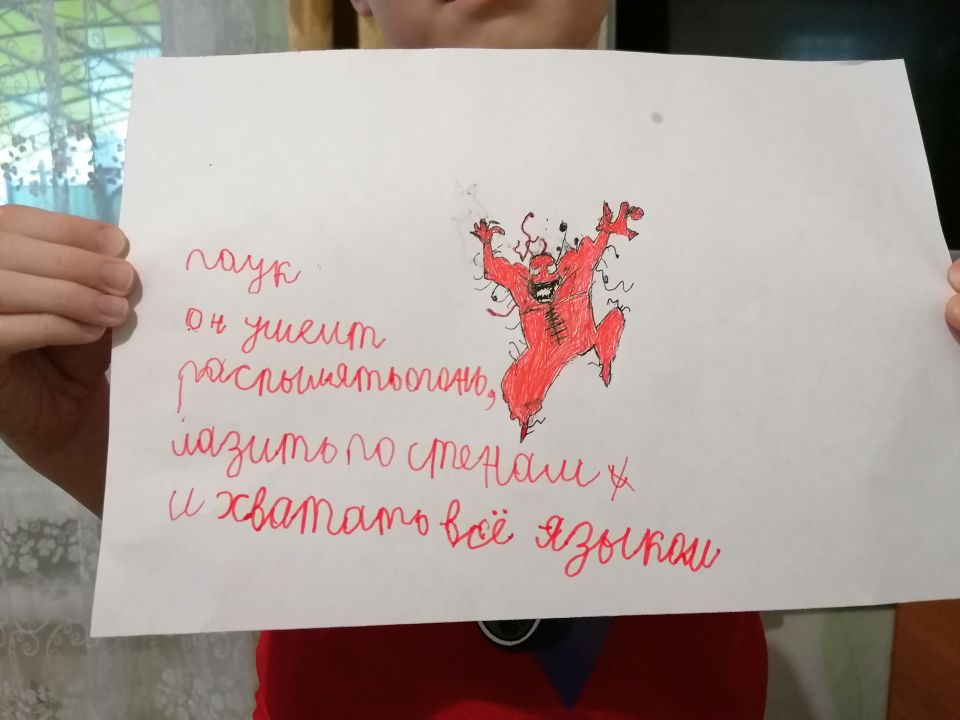 паук
он умеит
распылятьогонь,
лазить по стенам
и хватать всё языком